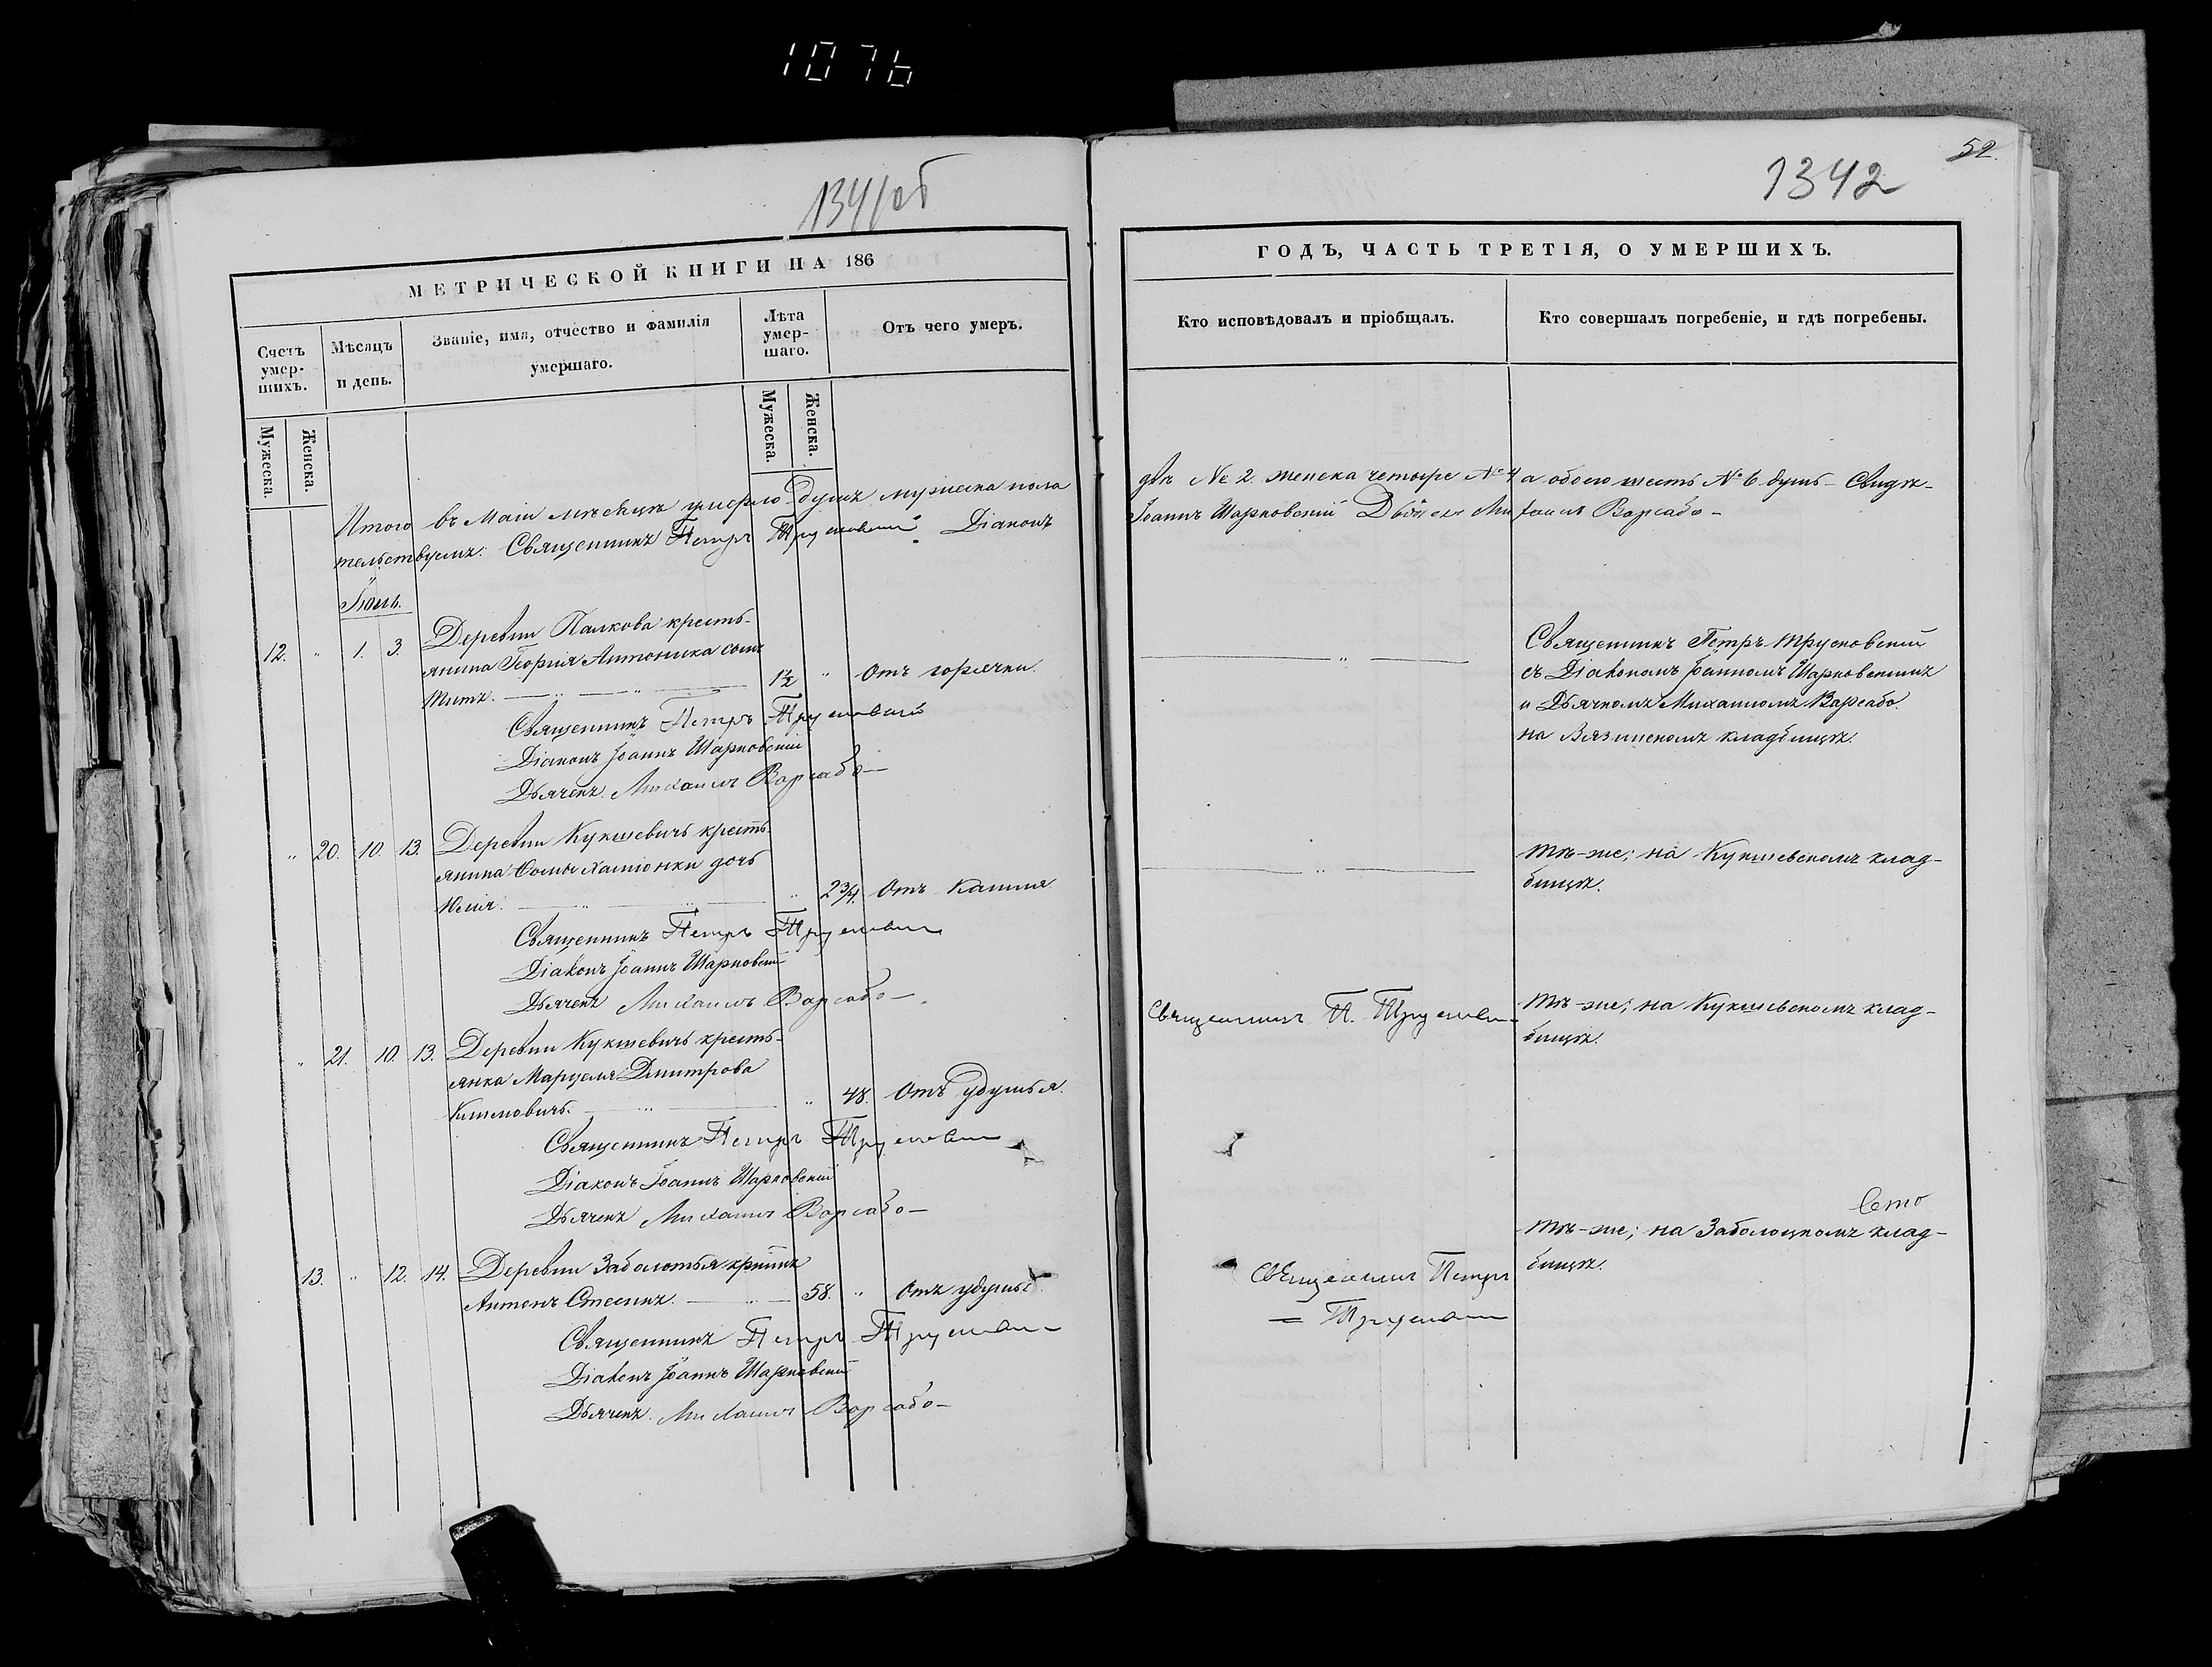 1076
1341об
МЕТРИЧЕСКОЙ КНИГИ НА 186
Счетъ умер-шихъ.
Мужеска.
Женска.
Мѣсяцъ и день.
Званіе, имя, отчество и фамилія умершаго.
Лѣта умер-шаго.
Мужеска.
Женска.
Отъ чего умеръ.
Итого въ Маіи мѣсяцѣ умерло душъ мужеска пола
тельствуемъ: Священникъ Петръ Діаконъ
Іюнь.
12. " 1. 3. Деревни Палкова кресть-
янина Георгія Антоника сынъ
Титъ. 1½ " Отъ горячки.
Священникъ Петръ
Діаконъ Іоаннъ Шарковскій
Дьячекъ Михаилъ Варсабо
" 20. 10. 13. Деревни Кукшевичъ кресть-
янина дочь
" 2¾. Отъ кашля
Священникъ Петръ
Діаконъ Іоаннъ Шарковскій
Дьячекъ Михаилъ Варсабо
" 21. 10. 13. Деревни Кукшевичъ кресть-
янка Марцеля Дмитрова
" 48. Отъ удушья.
Священникъ Петръ
Діаконъ Іоаннъ Шарковскій
Дьячекъ Михаилъ Варсабо
13. " 12. 14. Деревни Заболотья
Антонъ 58. " Отъ удушья.
Священникъ Петръ
Діаконъ Іоаннъ Шарковскій
Дьячекъ Михаилъ Варсабо
52.
1342
ГОДЪ, ЧАСТЬ ТРЕТІЯ, О УМЕРШИХЪ.
Кто исповѣдовалъ и пріобщалъ.
Кто совершалъ погребеніе, и гдѣ погребены.
два № 2 женска четыре № 4 а обоего шесть № 6 душъ - Свидѣ-
Іоаннъ Шарковскій Михаилъ Варсабо -
Священникъ Петръ
съ Діакономъ Іоанномъ Шарковскимъ
и Дьячкомъ Михаиломъ Варсабо.
на кладбищѣ.
Тѣ-же; на Кукшевскомъ клад-
бищѣ.
Священникъ П.
Тѣ-же; на Кукшевскомъ клад-
бищѣ.
Тѣ-же; на Заболоцкомъ клад-
бищѣ.
Священникъ Петръ